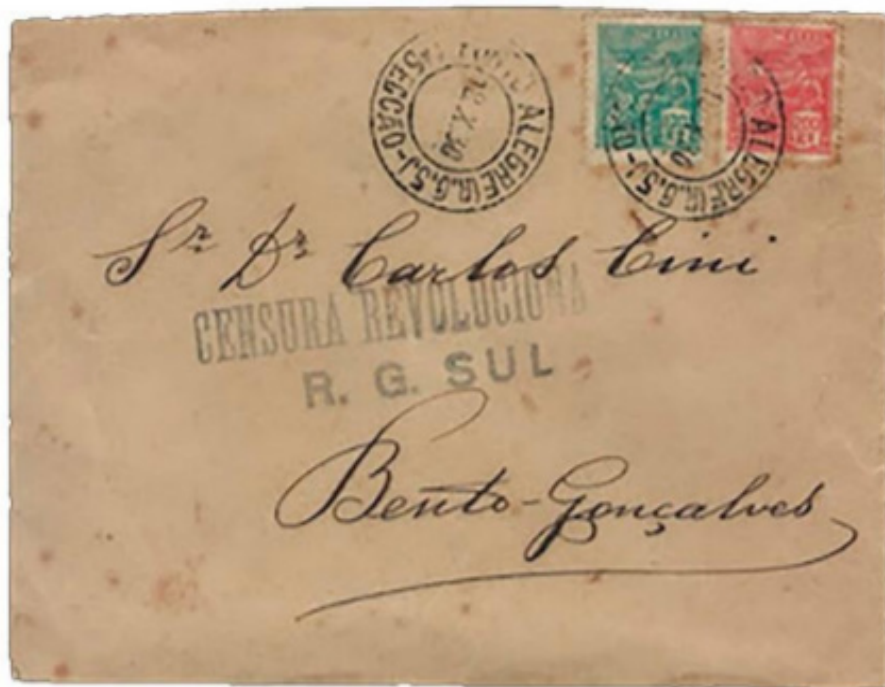 ALEGRE (R.G.S.) - 
SECCÃO
X.30
ALEGRE (R.G.S.) -
Sr. Dr. Carlos Cini
CENSURA REVOLUCIONA
R. G. SUL
Bento-Gonçalves